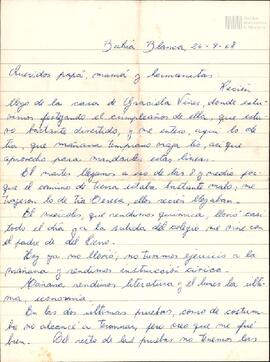 Bahía Blanca, 26-9-68
Queridos papá, mamá y hermanitas:
Recién
llego de la casa de Graciela Viñes, donde estu-
vimos festejando el cumpleaños de ella, que estu-
vo bastante divertido, y me entero, aquí lo de
tía, que mañana temprano viaja tío, así que
aprovecho para mandarles estas líneas.
El martes llegamos a eso de las 8 y medio por-
que el camino de tierra estaba bastante malo, me
trajeron lo de tía Teresa, ellos recién llegaban.
El miércoles, que rendimos química, llovió casi
todo el día y a la salida del colegio me vine con
el padre de del
Hoy ya no llovió, no tuvimos ejercicio a la
mañana y rendimos instrucción cívica.
Mañana rendimos literatura y el lunes la últi-
ma, economía.
En las dos últimas pruebas, como de costum-
bre no alcancé a terminar, pero creo que me fué
bien. Del resto de las pruebas no tenemos las